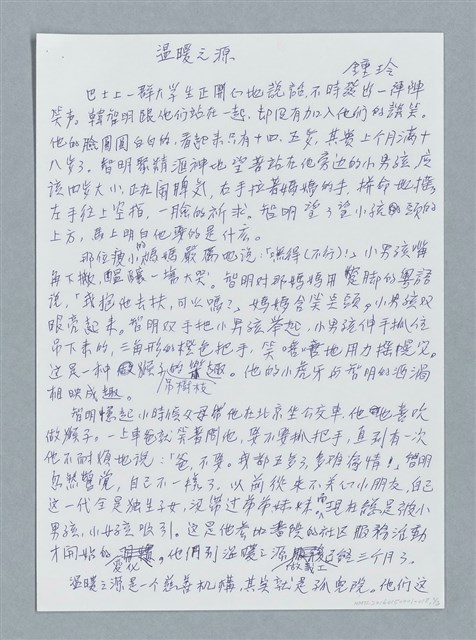 溫暖之源
鍾玲
巴士上一群大学生正開心地說話,不時發出一陣陣
笑声。韓智明跟他們站在一起,却没有加入他們的談笑。
他的臉圓圓白白的,看起來只有十四、五岁,其实上个月滿十
八岁了。智明聚精滙神地望著站在他旁边的小男孩,应
該四岁大小,正在闹脾気,右手拉著媽媽的手,拼命地搖,
左手往上空指,一脸的祈求。智明望了望小孩的頭的
上方,馬上明白他要的是什麽。
那位瘦小的媽媽嚴厲地说:「唔得(不行)!」小男孩嘴
角下撇,醞釀一場大哭。智明对那媽媽用蹩脚的粵語
说,「我抱他去扶,可以嗎?」媽媽含笑点頭。小男孩双
眼亮起来。智明双手把小男孩举起,小男孩伸手抓住
吊下来的,三角形的橙色把手,笑嘻嘻地用力搖幌它。
這是一种猴子吊樹枝的樂趣。他的小虎牙与智明的酒渦
相映成趣。
智明憶起小時候父母带他在北京坐公交車,他也喜欢
做猴子。一上車爸就笑著問他,要不要抓把手,直到有一次
他不耐煩地说:「爸,不要。我都五岁了,多难為情!」智明
忽然警覚,自己不一樣了。以前從来不关心小朋友,自己
這一代全是独生子女,没带过弟弟妹妹嘛。現在總是被小
男孩,小女孩吸引。这是他参加書院的社区服務活動
才開始的变化。他們到溫暖之源做義工已經三个月了。
溫暖之源是一个慈善机構,其实就是孤兒院。他們这